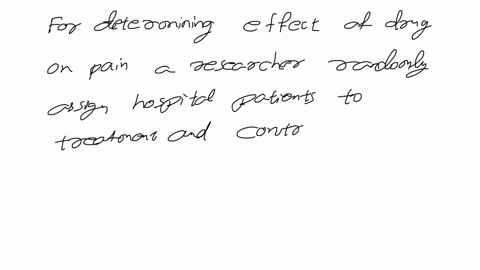 For determining effect of drug
on pain a researcher randomly
assign hospital patients to
treatment and contr